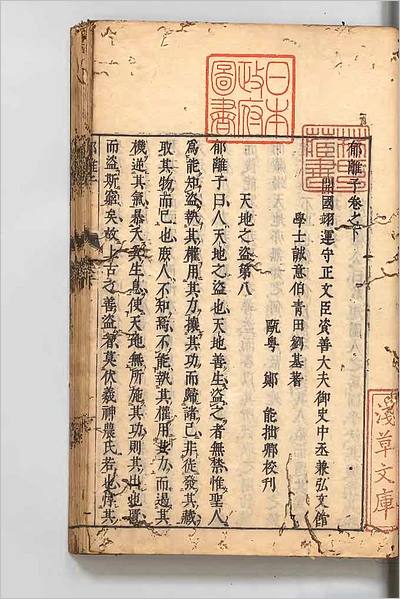 日本
政府
圖書
淺草文庫
郁離子卷之下
開國翊運守正文臣資善大夫御史中丞兼弘文館
學士誠意伯青田劉基著
甌粤 鄭 能拙卿校刊
天地之盜第八
郁離子曰人天地之盜也天地善生盜之者無禁惟聖人
爲能知盜執其權用其力攘其功而歸諸己非徒發其藏
取其物而已也庶人不知焉不能執其權用其力而遏其
機逆其氣暴夭其生息使天地無所施其功則其出也匱
而盜斯窮矣故上古之善盜者莫伏羲神農氏若也惇其